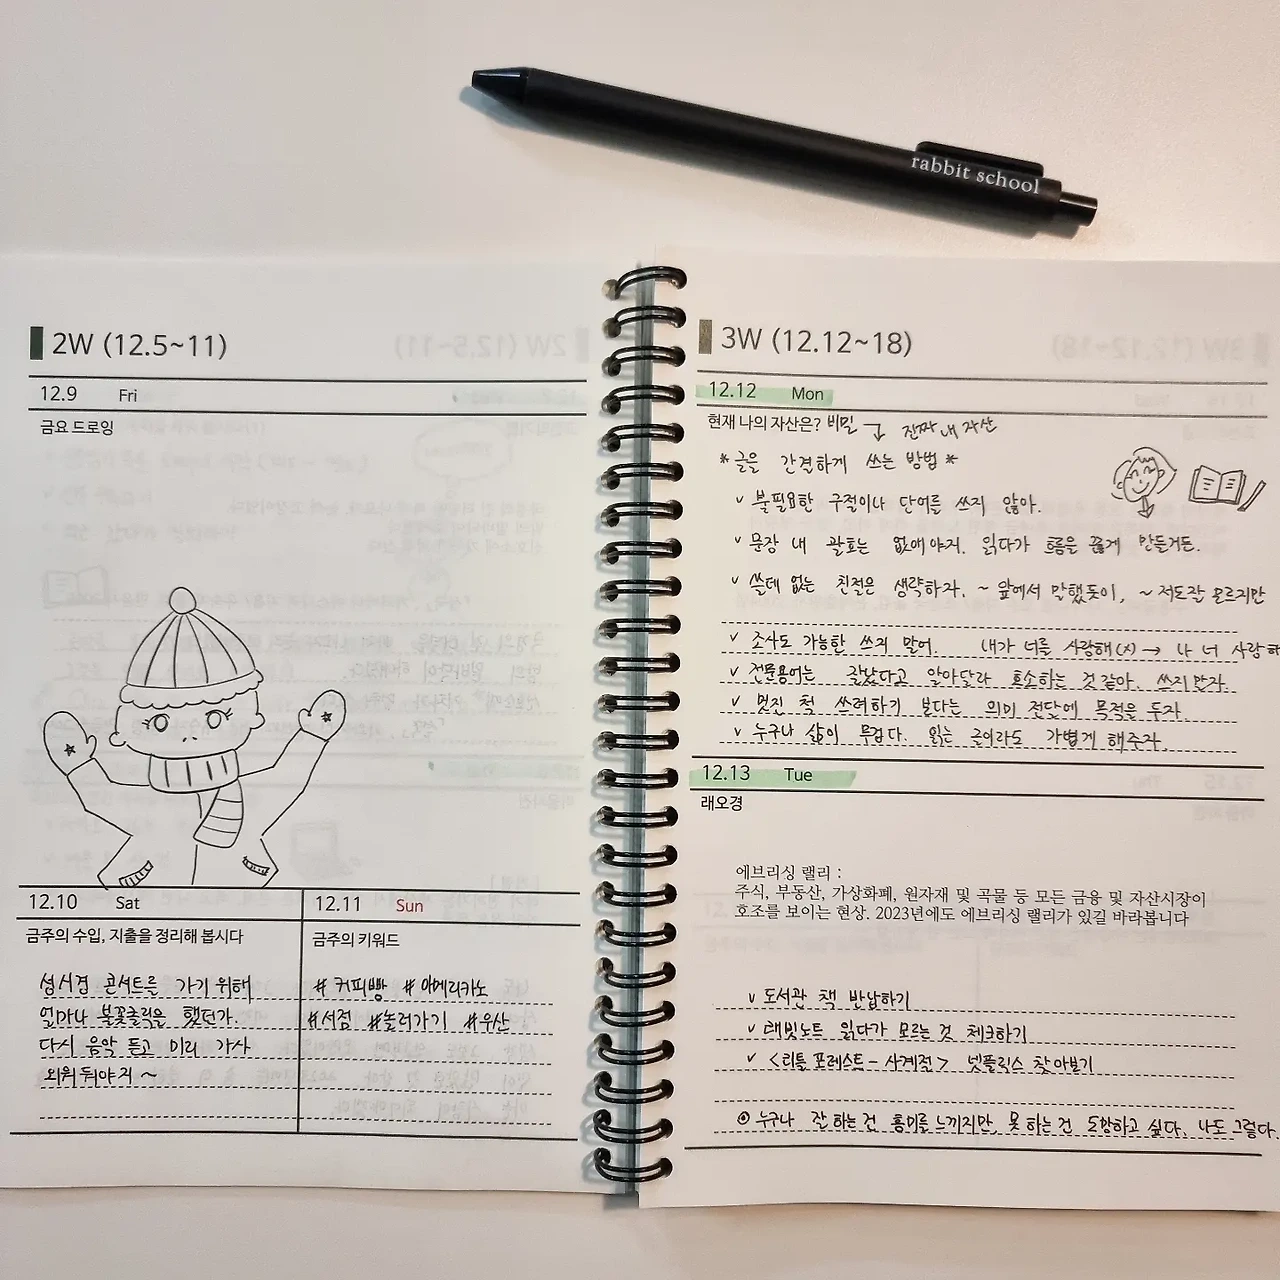 rabbit school
2W (12.5~11)
12.9 Fri
금요 드로잉
12.10 Sat
금주의 수입, 지출을 정리해 봅시다
성시경 콘서트를 가기 위해
얼마나 불꽃클릭을 했던가.
다시 음악 듣고 미리 가사
외워둬야지~
12.11 Sun
금주의 키워드
#커피빵 #아메리카노
#서점 #놀러가기 #우산
3W (12.12~18)
12.12 Mon
현재 나의 자산은? 비밀 → 진짜 내 자산
*글을 간결하게 쓰는 방법*
✓ 불필요한 구절이나 단어를 쓰지 않아.
✓ 문장 내 괄호는 없애야지. 읽다가 흐름을 끊게 만들거든.
✓ 쓸데 없는 친절은 생략하자. ~ 앞에서 말했듯이, ~ 저도 잘 모르지만
✓ 조사도 가능한 쓰지 말어. 내가 너를 사랑해(x) → 나 너 사랑해
✓ 전문용어는 잘났다고 알아달라 호소하는 것 같아. 쓰지만자.
✓ 멋진 척 쓰려하기 보다는 의미 전달에 목적을 두자.
✓ 누구나 삶이 무겁다. 읽는 글이라도 가볍게 해주자.
12.13 Tue
래오경
에브리싱 랠리 :
주식, 부동산, 가상화폐, 원자재 및 곡물 등 모든 금융 및 자산시장이
호조를 보이는 현상. 2023년에도 에브리싱 랠리가 있길 바라봅니다
✓ 도서관 책 반납하기
✓ 래빗노트 읽다가 모르는 것 체크하기
✓ <리틀 포레스트 - 사계절> 넷플릭스 찾아보기
◎ 누구나 잘 하는 건 흥미를 느끼지만, 못 하는 건 도망하고 싶다. 나도 그렇다.